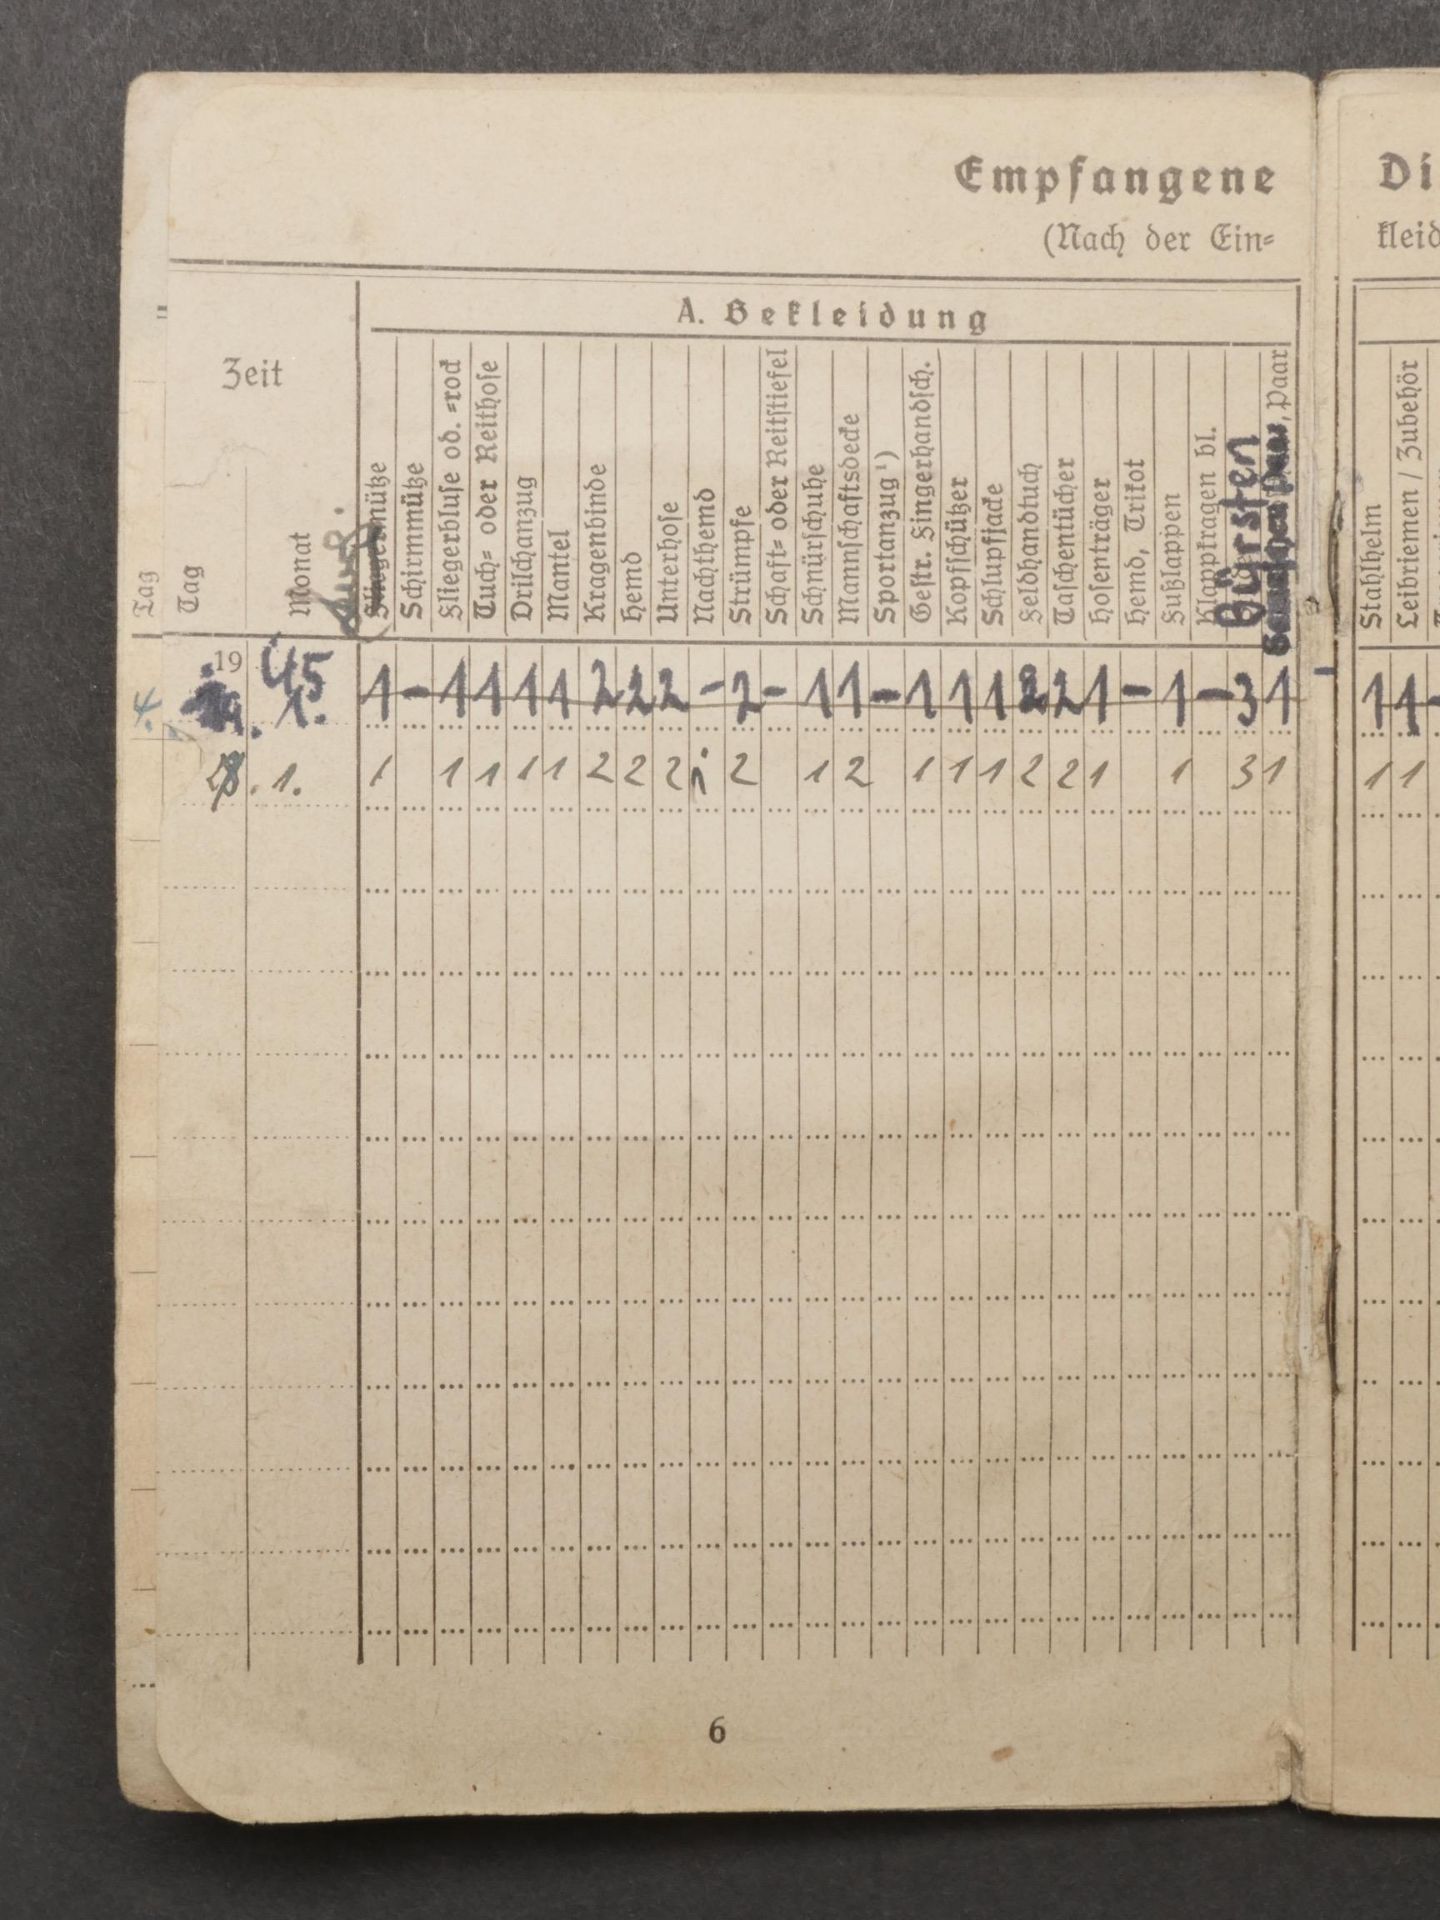 Empfangene Di
(Nach der Ein= kleid
A. Bekleidung
Zeit
Tag
Tag
Monat
Schirmmütze
Fliegerbluse od. =rock
Tuch= oder Reithose
Drilchanzug
Mantel
Kragenbinde
Hemd
Unterhose
Nachthemd
Strümpfe
Schaft= oder Reitstiefel
Schnürschuhe
Mannschaftsdecke
Sportanzug ¹)
Gestr. Fingerhandsch.
Kopfschützer
Schlupfjacke
Feldhandtuch
Taschentücher
Hosenträger
Hemd, Trikot
Fußlappen
Klappkragen bl.
Bürsten
, Paar
Stahlhelm
Leibriemen / Zubehör
19 45
4. 1. 1 - 1 1 1 1 2 2 2 - 2 - 1 1 - 1 1 1 2 2 1 - 1 - 3 1 - 1 1 -
28. 1. 1 1 1 1 1 2 2 2 1 2 1 2 1 1 1 2 2 1 1 3 1 1 1
6